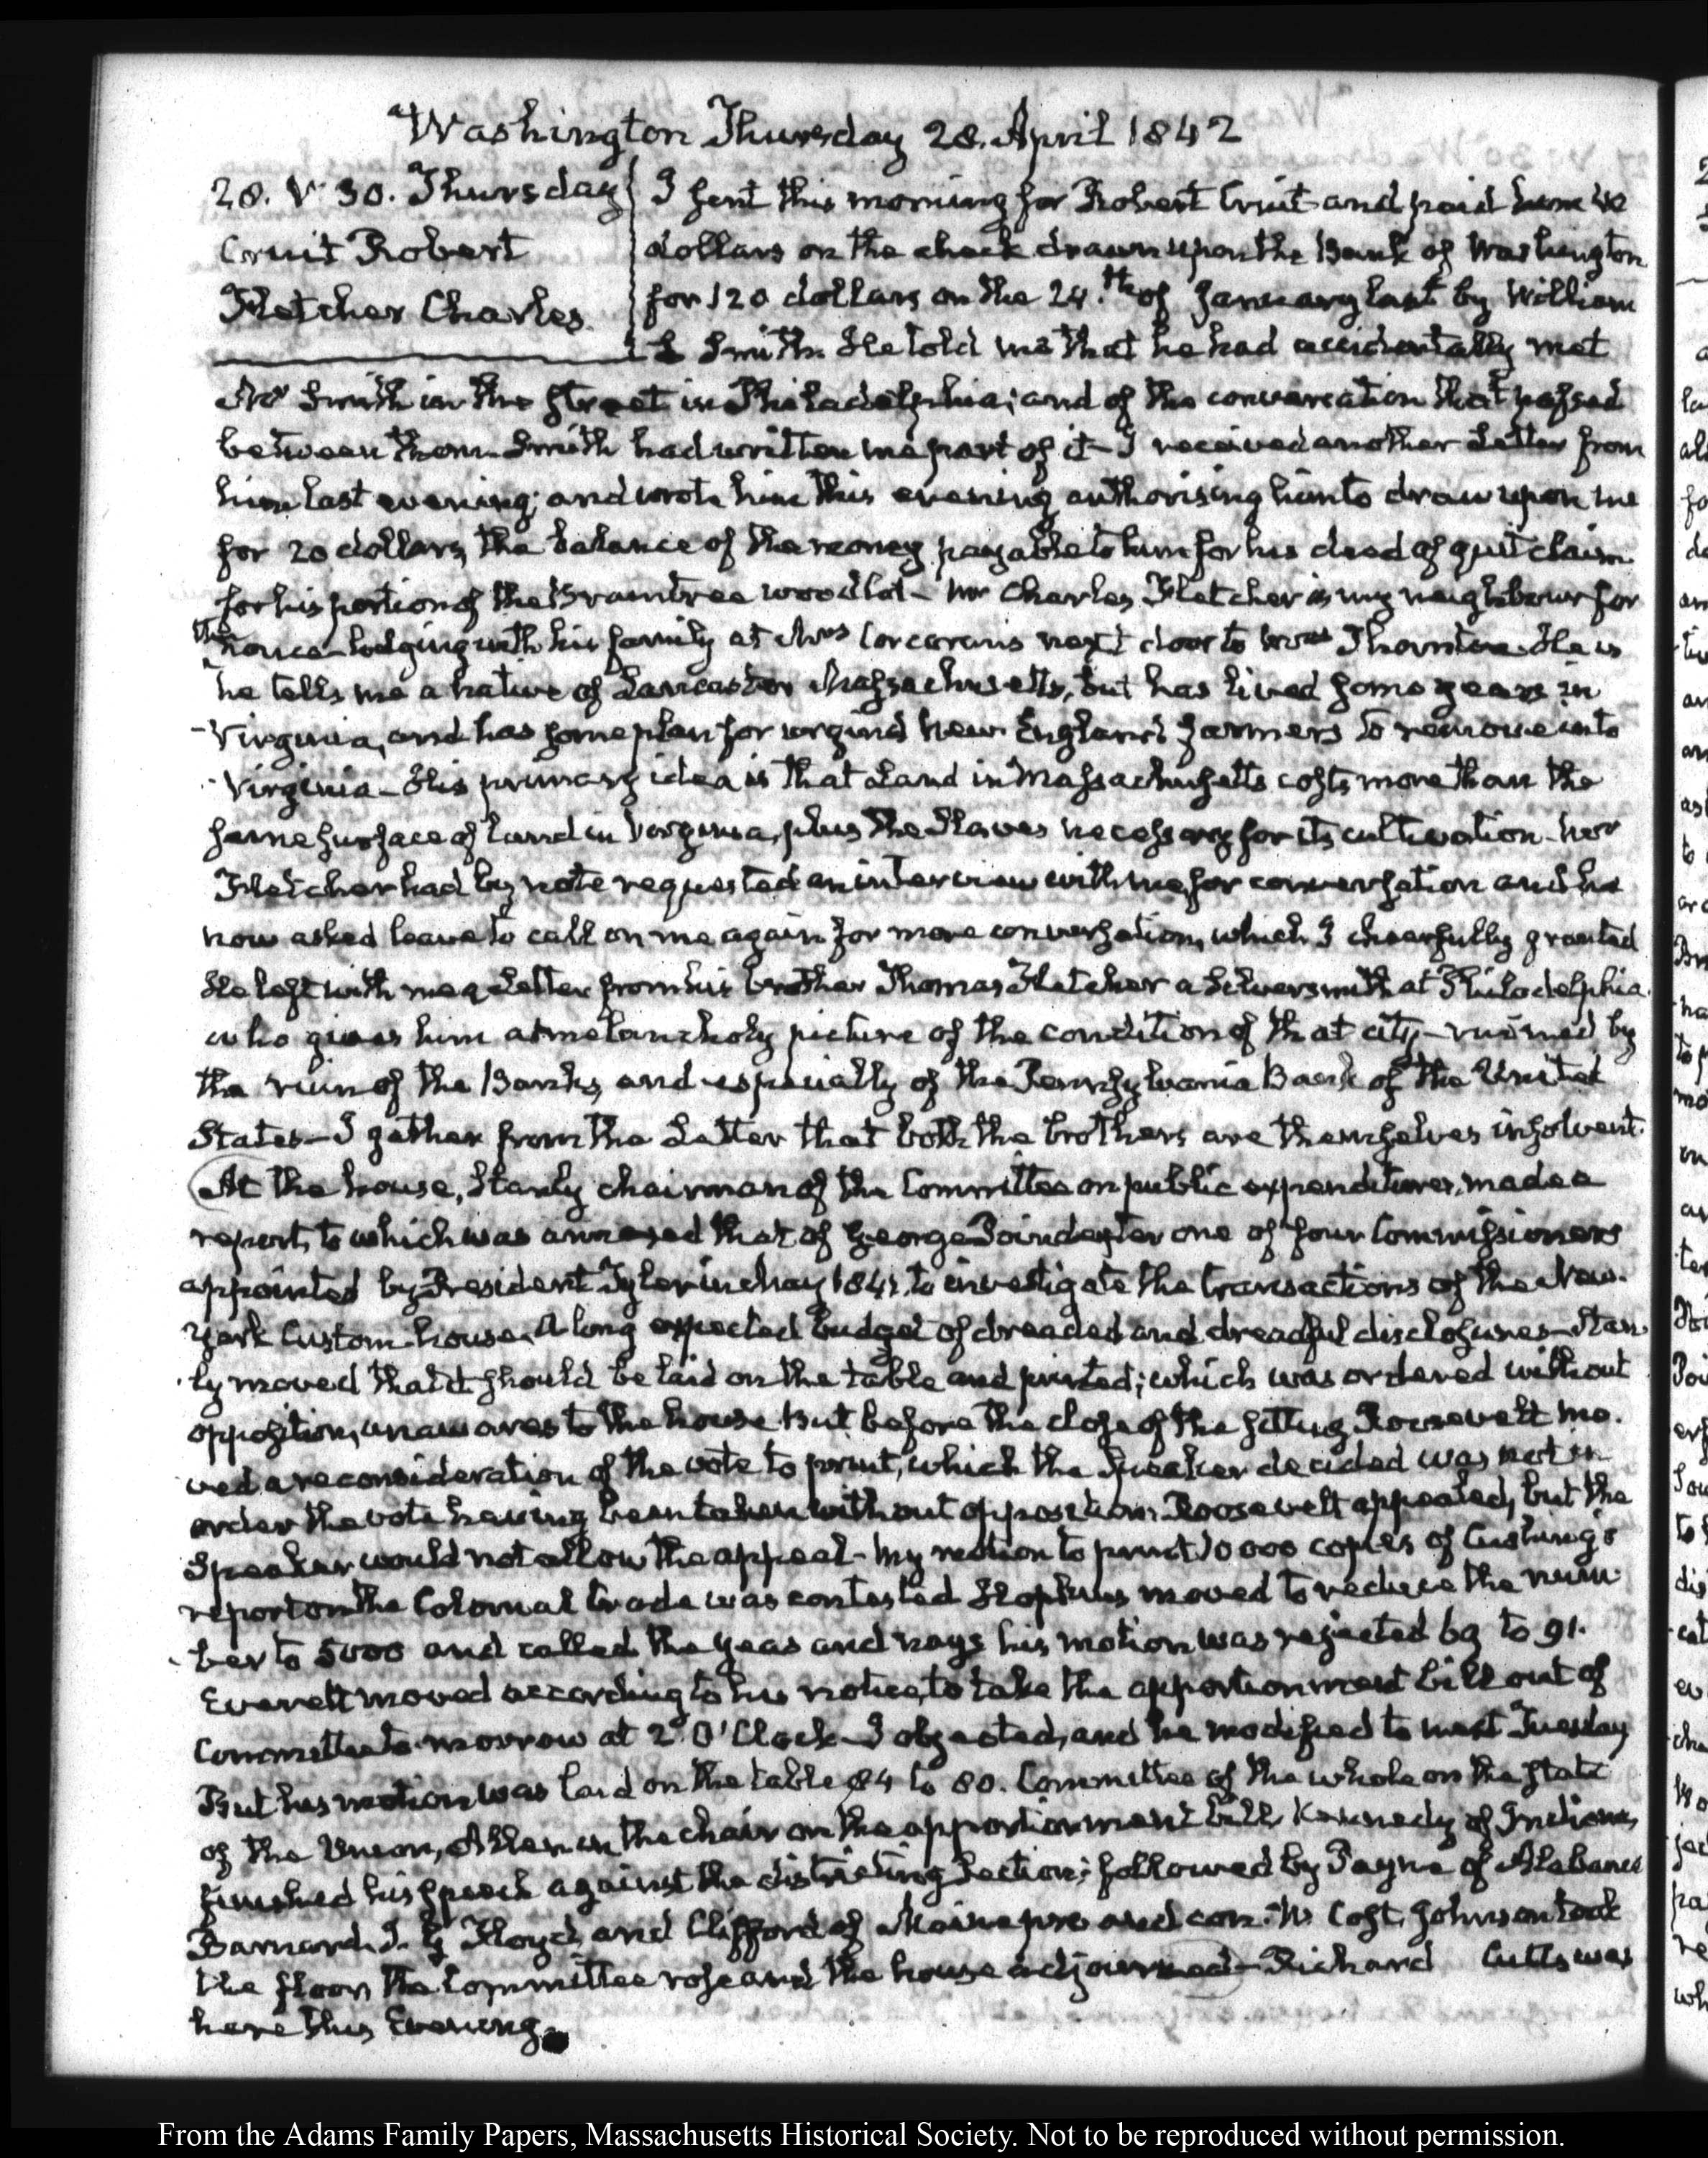 Washington Thursday 28. April 1842
28. V. 30. Thursday
Cruit Robert
Fletcher Charles
I sent this morning for Robert Cruit and paid him
dollars on the check drawn upon the Bank of Washington
for 120 dollars on the 24.th of January last by William
Smith. He told me that he had accidentally met
Mr Smith in the street in Philadelphia; and of the conversation that passed
between them. Smith had written me part of it - I received another Letter from
him last evening; and wrote him this evening authorising him to draw upon me
for 20 dollars, the balance of the money payable to him for his deed of quit claim
for his portion of the Braintree woodlot - Mr Charles Fletcher is my neighbour for
the nonce - lodging with his family at Mrs Corcoran's next door to Mrs Thornton. He is
he tells me a native of Lancaster Massachusetts, but has lived some years in
Virginia, and has some plan for urging New England farmers to remove into
Virginia - His primary idea is that Land in Massachusetts costs more than the
same surface of land in Virginia, plus the Slaves necessary for its cultivation - Mr
Fletcher had by note requested an interview with me, for conversation and he
now asked leave to call on me again for more conversation, which I cheerfully granted
He left with me a Letter from his brother Thomas Fletcher a Silversmith at Philadelphia
who gives him a melancholy picture of the condition of that city - ruined by
the ruin of the Banks, and especially of the Pennsylvania Bank of the United
States - I gather from the Letter that both the brothers are themselves insolvent.
At the house, Stanly chairman of the Committee on public expenditures, made a
report, to which was annexed that of George Poindexter one of four Commissioners
appointed by President Tyler in May 1841. to investigate the transactions of the New-
York Custom-house. A long expected budget of dreaded and dreadful disclosures - Stan-
ly moved that it should be laid on the table and printed; which was ordered without
opposition, unawares to the house But before the close of the sitting Roosevelt mo-
ved a reconsideration of the vote to print, which the Speaker decided was not in
order the vote having been taken without opposition. Roosevelt appealed, but the
Speaker would not allow the appeal - My motion to print 10 000 copies of Cushing's
report on the Colonial trade was contested Hopkins moved to reduce the num-
ber to 5000 and called the yeas and nays his motion was rejected 69 to 91.
Everett moved according to his notice, to take the apportionment bill out of
Committee to-morrow at 2 O'Clock - I objected, and he modified to next Tuesday
But his motion was laid on the table 84 to 80. Committee of the whole on the state
of the Union, Allen in the chair on the apportionment bill Kennedy of Indiana,
finished his speech against the districting Section; followed by Payne of Alabama
Barnard. J. G Floyd, and Clifford of Maine pro and con. W. Cost. Johnson took
the floor the Committee rose and the house adjourned - Richard Cutts was
here this Evening.
From the Adams Family Papers, Massachusetts Historical Society. Not to be reproduced without permission.